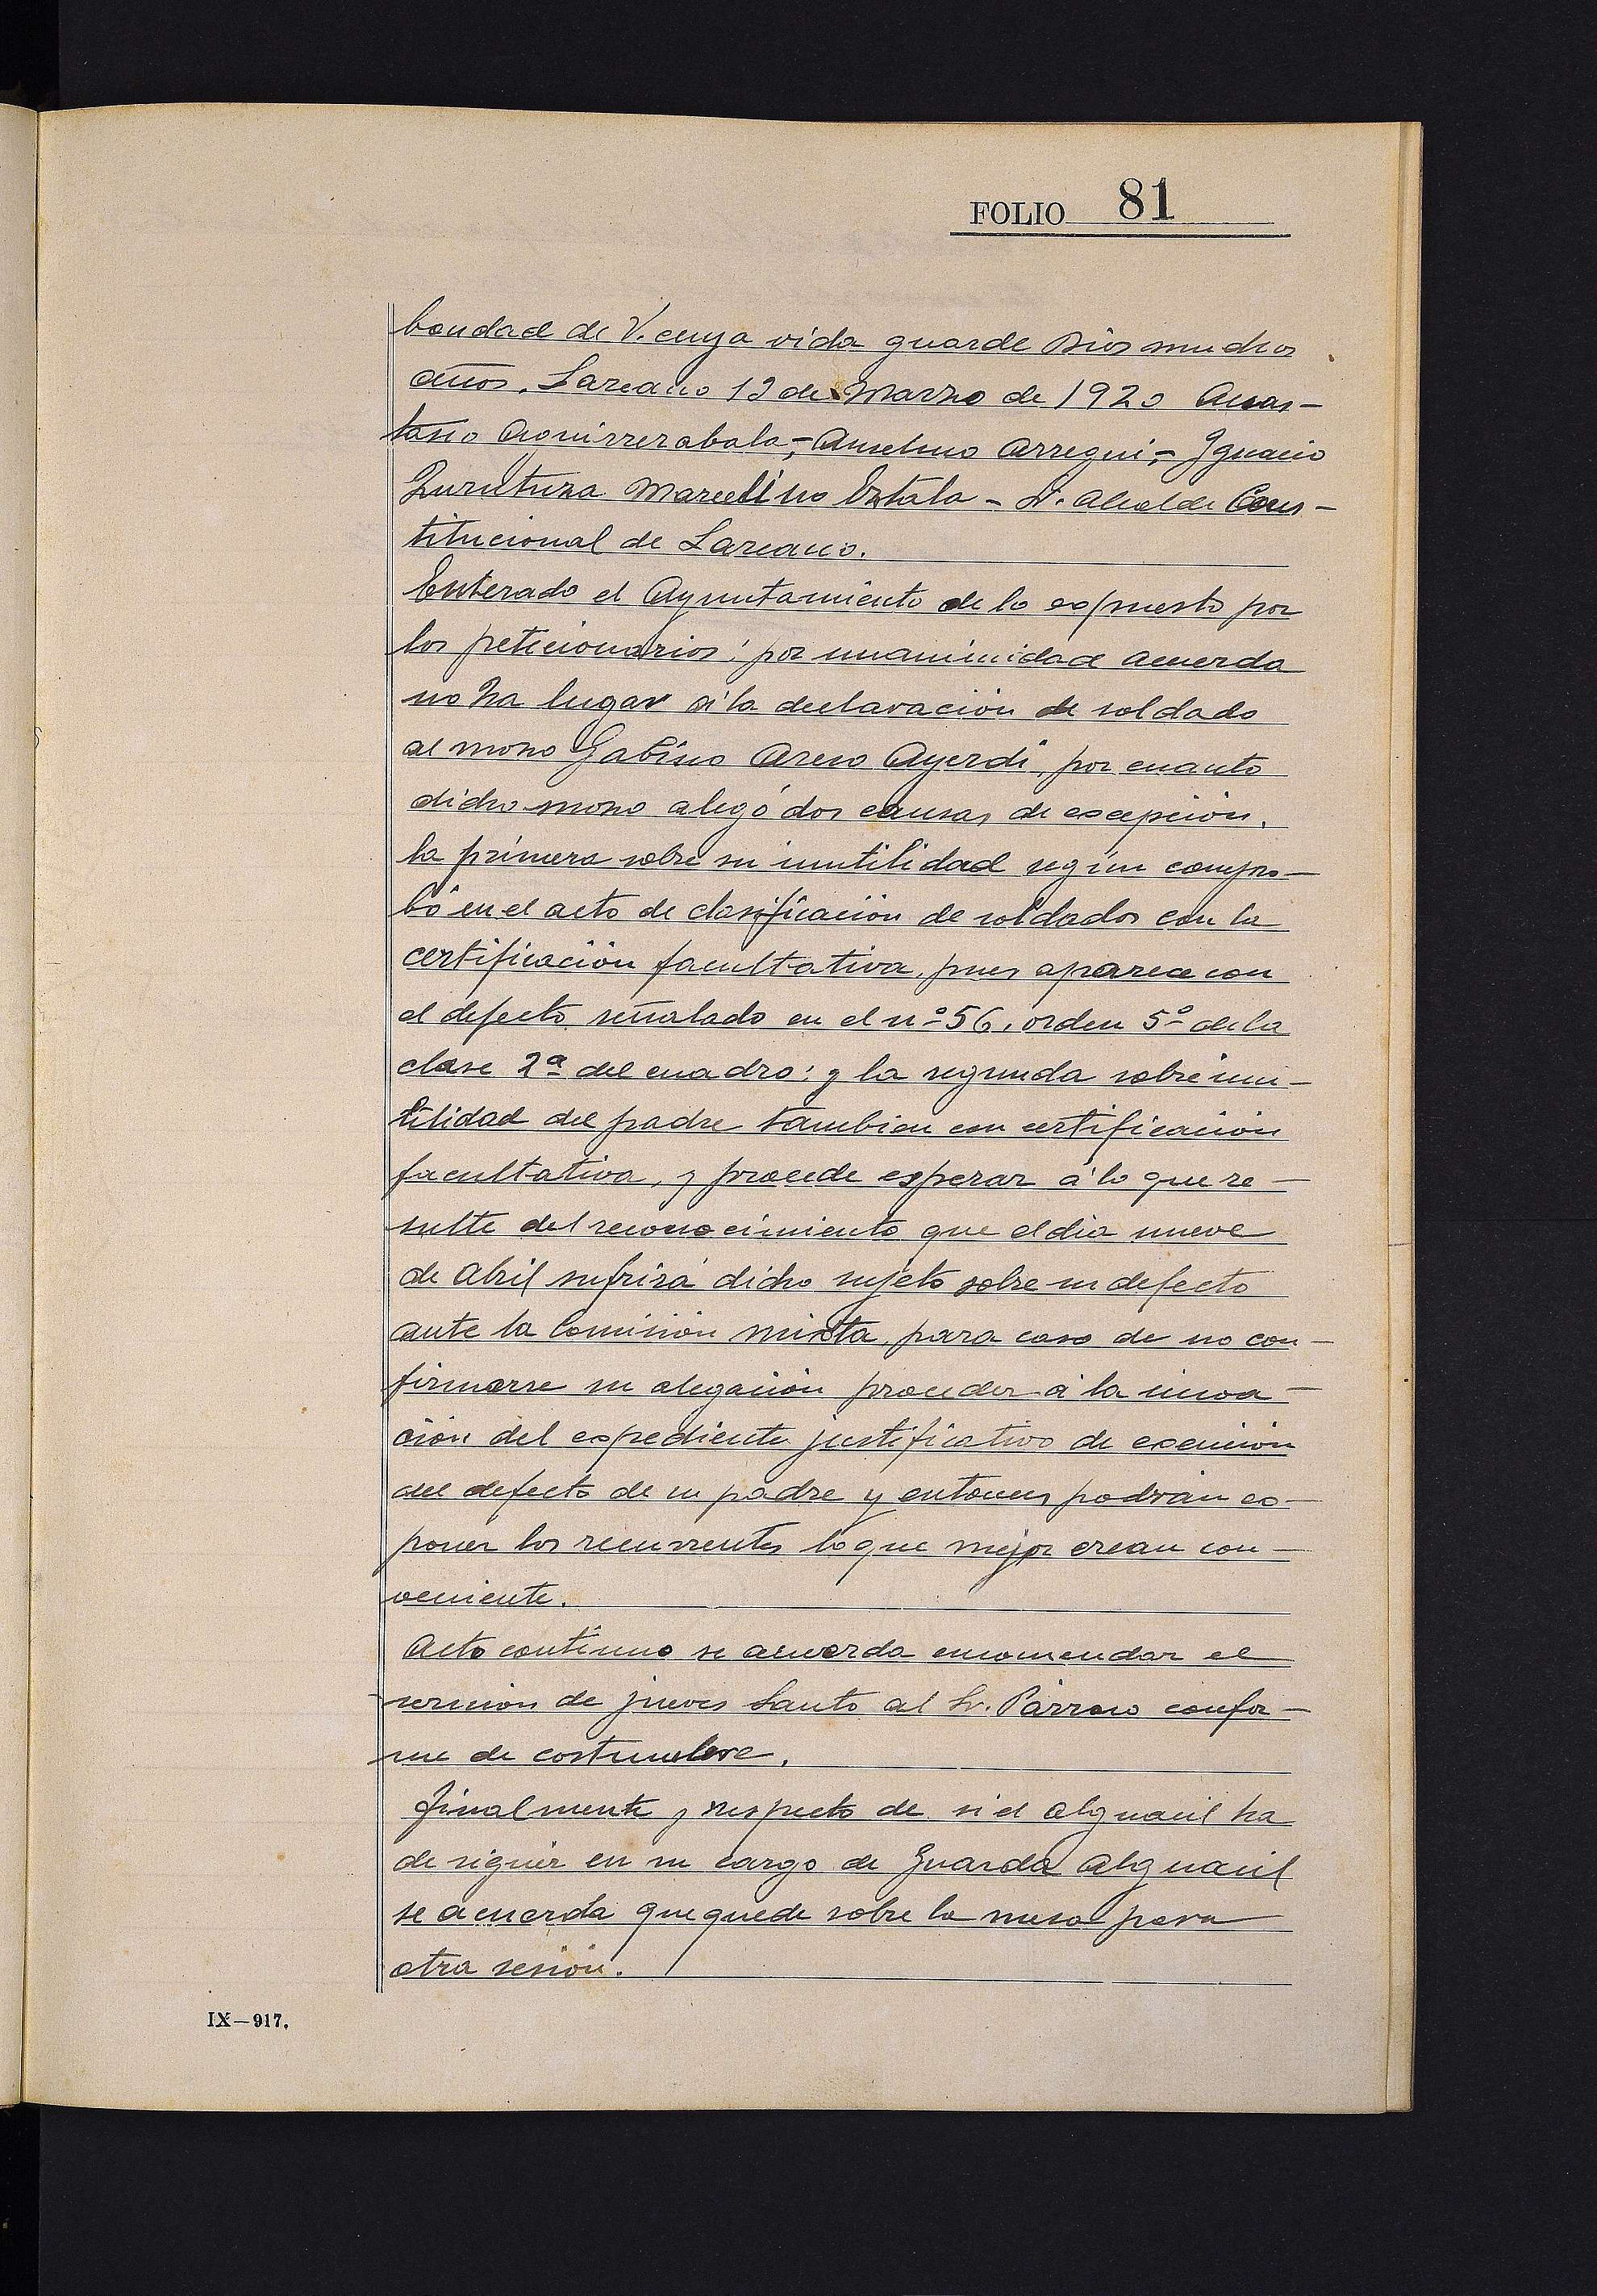 FOLIO 81
bondad de V. cuya vida guarde Dios muchos
años. Lazcano 19 de Marzo de 1920 Anas-
tasio Aguirrezabala,- Anselmo Arregui,- Ignacio
Zurutuza Marcelino Estala - Sr. Alcalde Cons-
titucional de Lazcano.
Enterado el Ayuntamiento de lo expuesto por
los peticionarios; por unanimidad acuerda
no ha lugar á la declaración de soldado
al mozo Gabino Aseso Ayerdi, por cuanto
dicho mozo alegó dos causas de excepción,
la primera sobre su inutilidad según compro-
bó en el acto de clasificación de soldados con la
certificación facultativa, pues aparece con
el defecto señalado en el nº 56, orden 5º de la
clase 2ª del cuadro; y la segunda sobre inu-
tilidad del padre tambien con certificación
facultativa, y procede esperar á lo que re-
sulte del reconocimiento que el dia nueve
de Abril sufrirá dicho sujeto sobre su defecto
ante la Comisión mixta, para caso de no con-
firmarse su alegación proceder á la incoa-
ción del expediente justificativo de exención
del defecto de su padre y entonces podrán ex-
poner los recurrentes lo que mejor crean con-
veniente.
Acto contínuo se acuerda encomendar el
sermón de jueves Santo al Sr. Párroco confor-
me de costumbre.
Finalmente y respecto de si el Alguacil ha
de seguir en su cargo de Guarda Alguacil
se acuerda que quede sobre la mesa para
otra sesión.
IX—917.